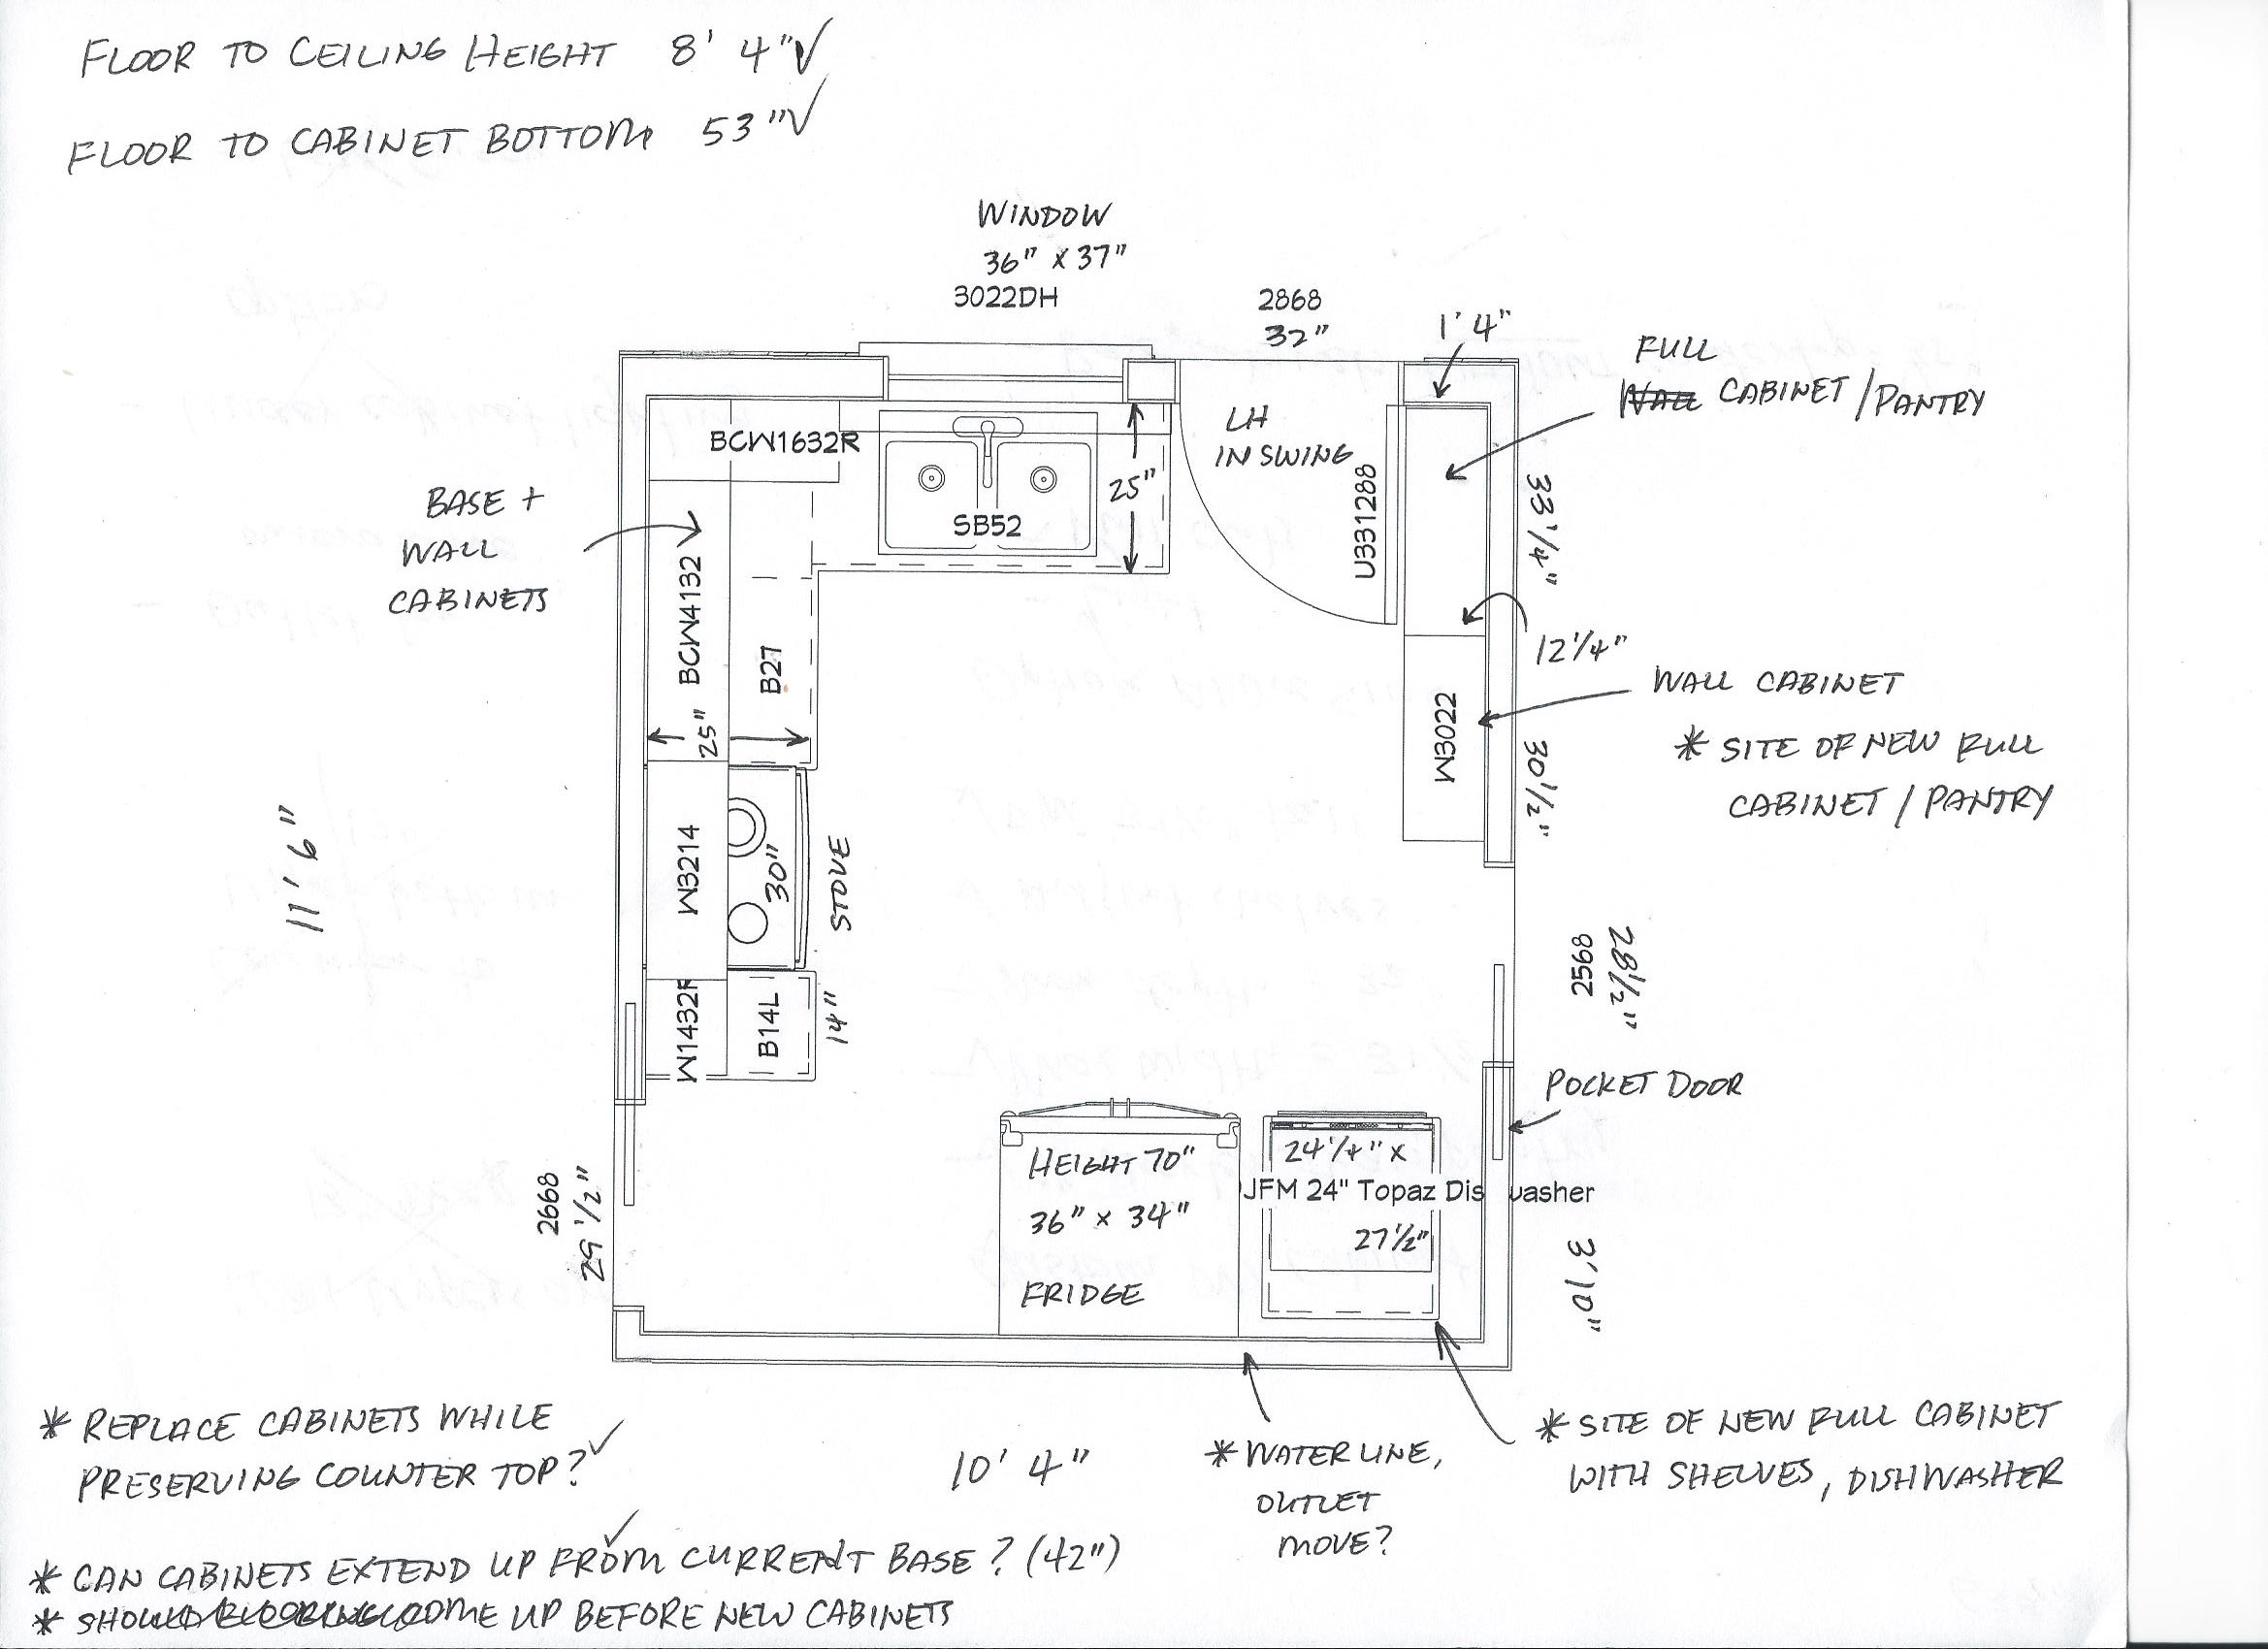 FLOOR TO CEILING HEIGHT 8' 4"✓
FLOOR TO CABINET BOTTOM 53"✓
WINDOW
36" x 37"
3022DH
2868
32"
1' 4"
FULL
WALL CABINET / PANTRY
LH
IN SWING
BCW1632R
SB52
25"
U331288
33 1/4"
BASE +
WALL
CABINETS
BCW4132
B27
25"
12 1/4"
WALL CABINET
* SITE OF NEW FULL
CABINET / PANTRY
W3022
30 1/2"
11' 6"
W3214
30"
STOVE
2568
28 1/2"
W1432R
B14L
14"
POCKET DOOR
HEIGHT 70"
36" x 34"
FRIDGE
24 1/4" x
JFM 24" Topaz Dis washer
27 1/2"
2668
29 1/2"
3' 10"
* REPLACE CABINETS WHILE
PRESERVING COUNTER TOP? ✓
10' 4"
* WATER LINE,
OUTLET
MOVE?
* SITE OF NEW FULL CABINET
WITH SHELVES, DISHWASHER
* CAN CABINETS EXTEND UP FROM CURRENT BASE? (42") ✓
* SHOULD FLOORING COME UP BEFORE NEW CABINETS